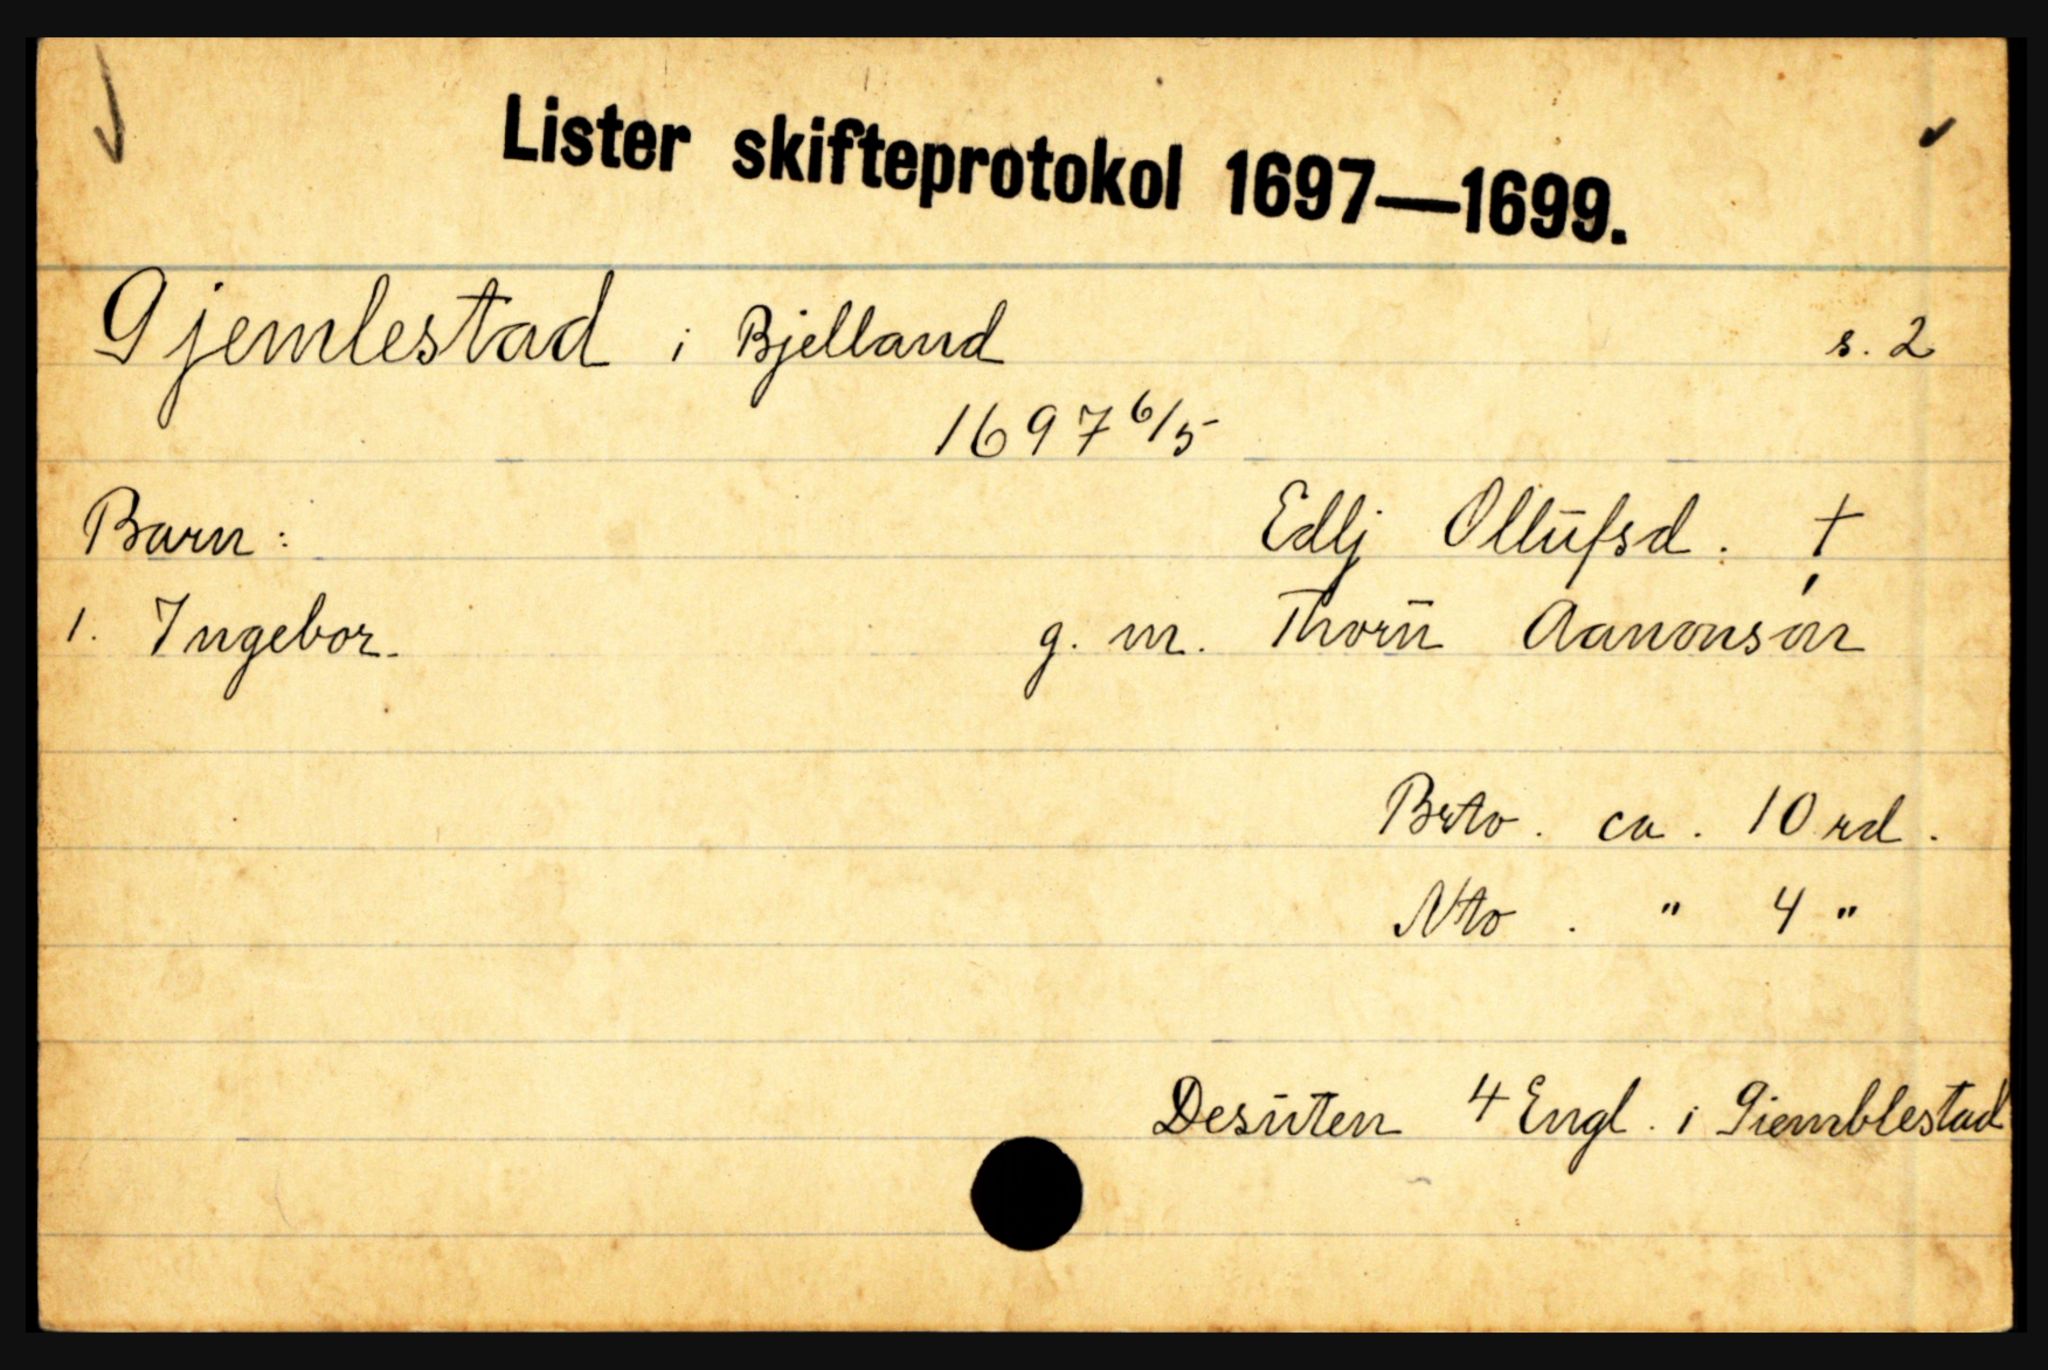 Lister skifteprotokol 1697—1699.
Gjemlestad i Bjelland s. 2
1697 6/5
Barn: Edlj Ollufsd. †
1. Ingebor. g. m. Thoru Aanonsøn
Brto. ca. 10 rd.
Nto. " 4 "
Desuten 4 Engl. i Giemblestad